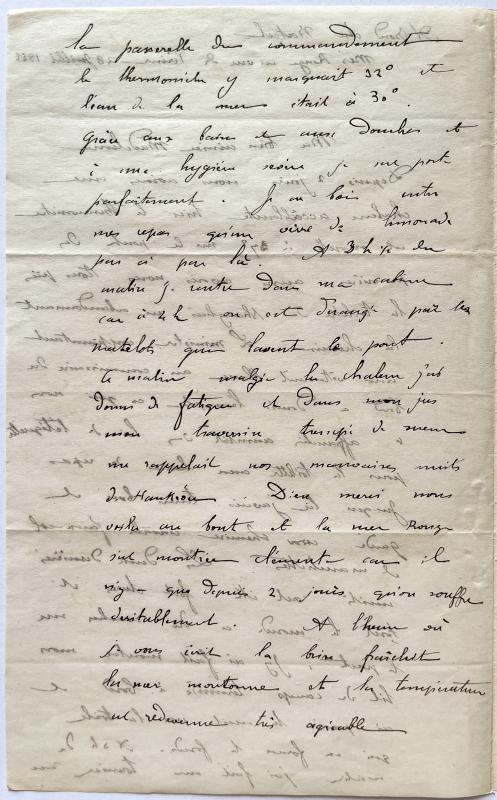 la passerelle du commandement
le thermomètre y marquait 32° et
l'eau de la mer était à 30°.
Grâce aux bains et aux Douches et
à une hygiène sévère je me porte
parfaitement. Je ne bois entre
mes repas qu'un verre de limonade
par ci par là. A 3h½ du
matin je rentre dans ma cabine
car à 4h on est dérangé par les
matelots qui lavent le pont.
Ce matin malgré la chaleur j'ai
dormi de fatigue et dans mon jus
mon traversin trempé de sueur
me rappelait nos mauvaises nuits
d'Hankéou. Dieu merci nous
voilà au bout et la mer Rouge
s'est montrée clémente car il
n'y a que depuis 2 jours qu'on souffre
véritablement. A l'heure où
je vous écris la brise fraîchit
la mer moutonne et la température
est redevenue très agréable